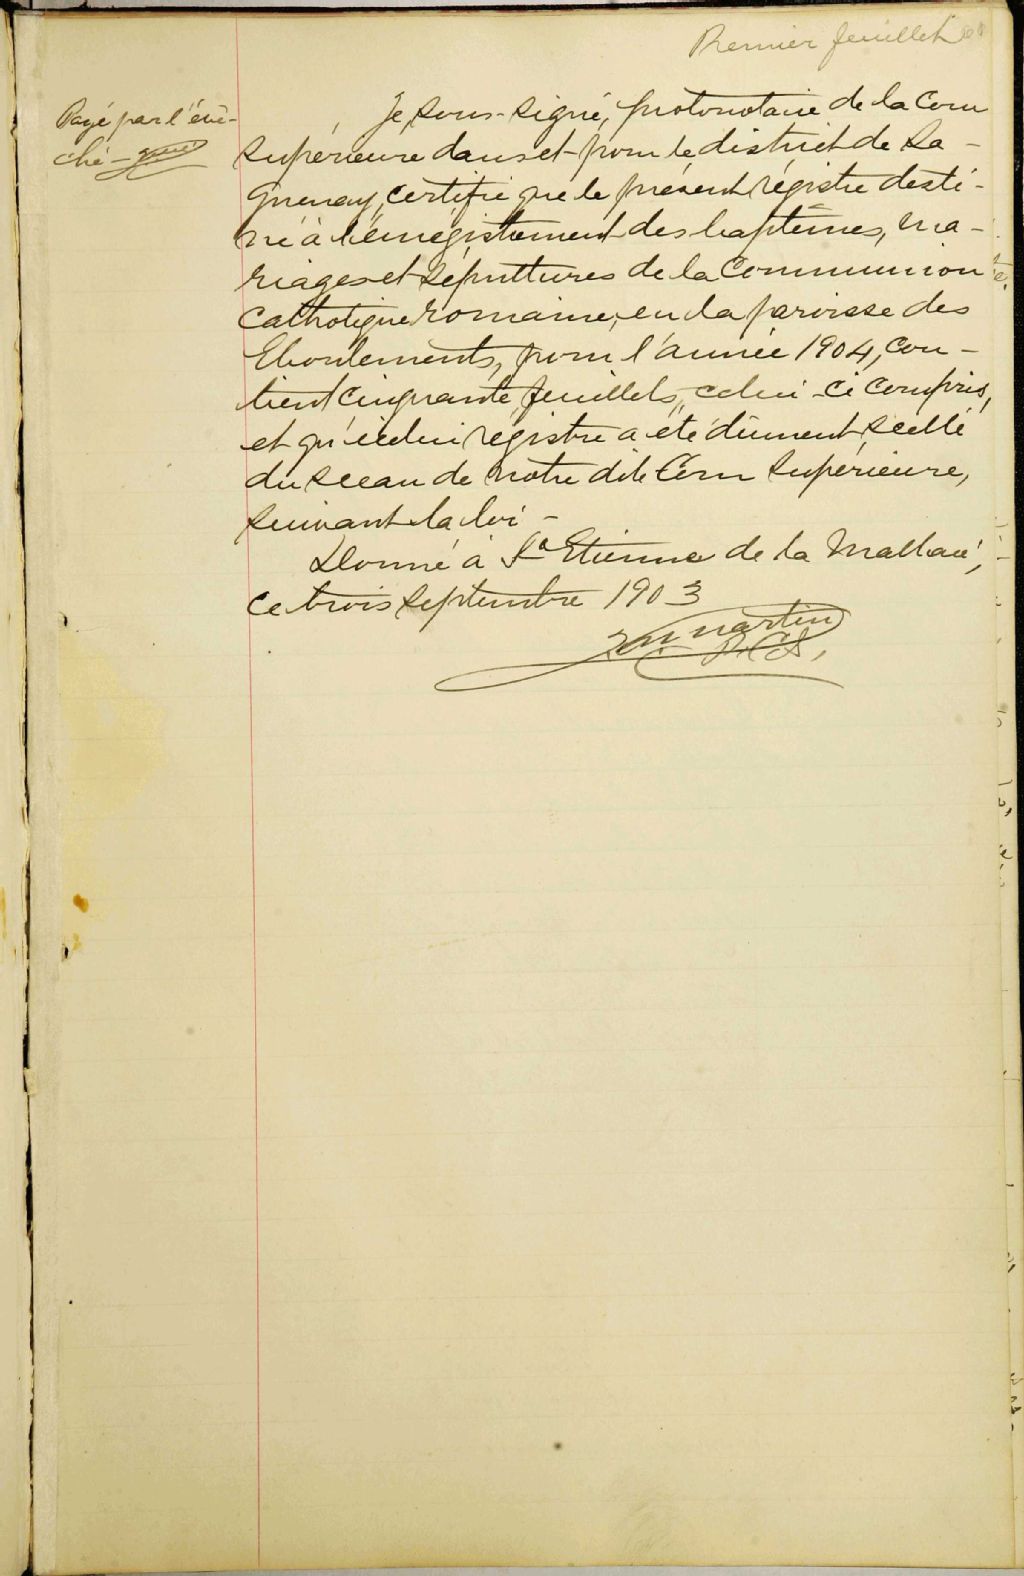 Premier feuillet
Payé par l'évê-
ché -
Je, sous-signé, protonotaire de la Cour
Supérieure dans et pour le district de Sa-
guenay, certifie que le présent régistre desti-
né à l'émégistrement des baptêmes, ma-
riages et sépultures de la Communion
Catholique romaine, en la paroisse des
Eboulements, pour l'année 1904, con-
tient cinquante feuillets, celui-ci compris,
et qu'icelui régistre a été dûment scellé
du sceau de notre dite Cour Supérieure,
suivant la loi -
Donné à St Etienne de la Malbaie,
ce trois Septembre 1903
Martin
P.C.S.